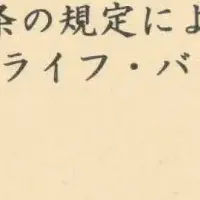 条の規定によ
ライフ・バ